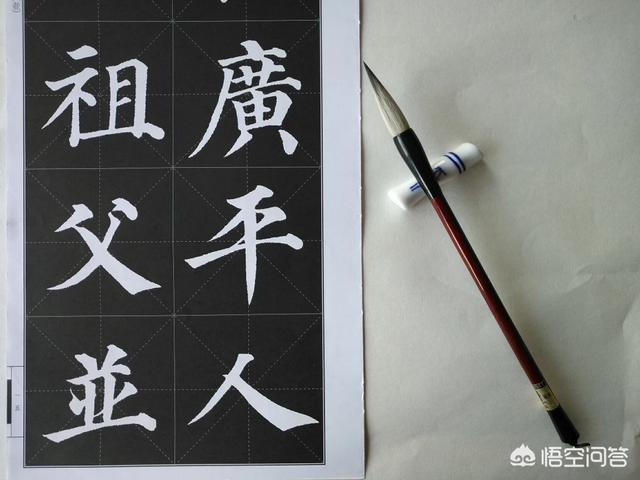 廣平人
祖父並
一五
悟空问答